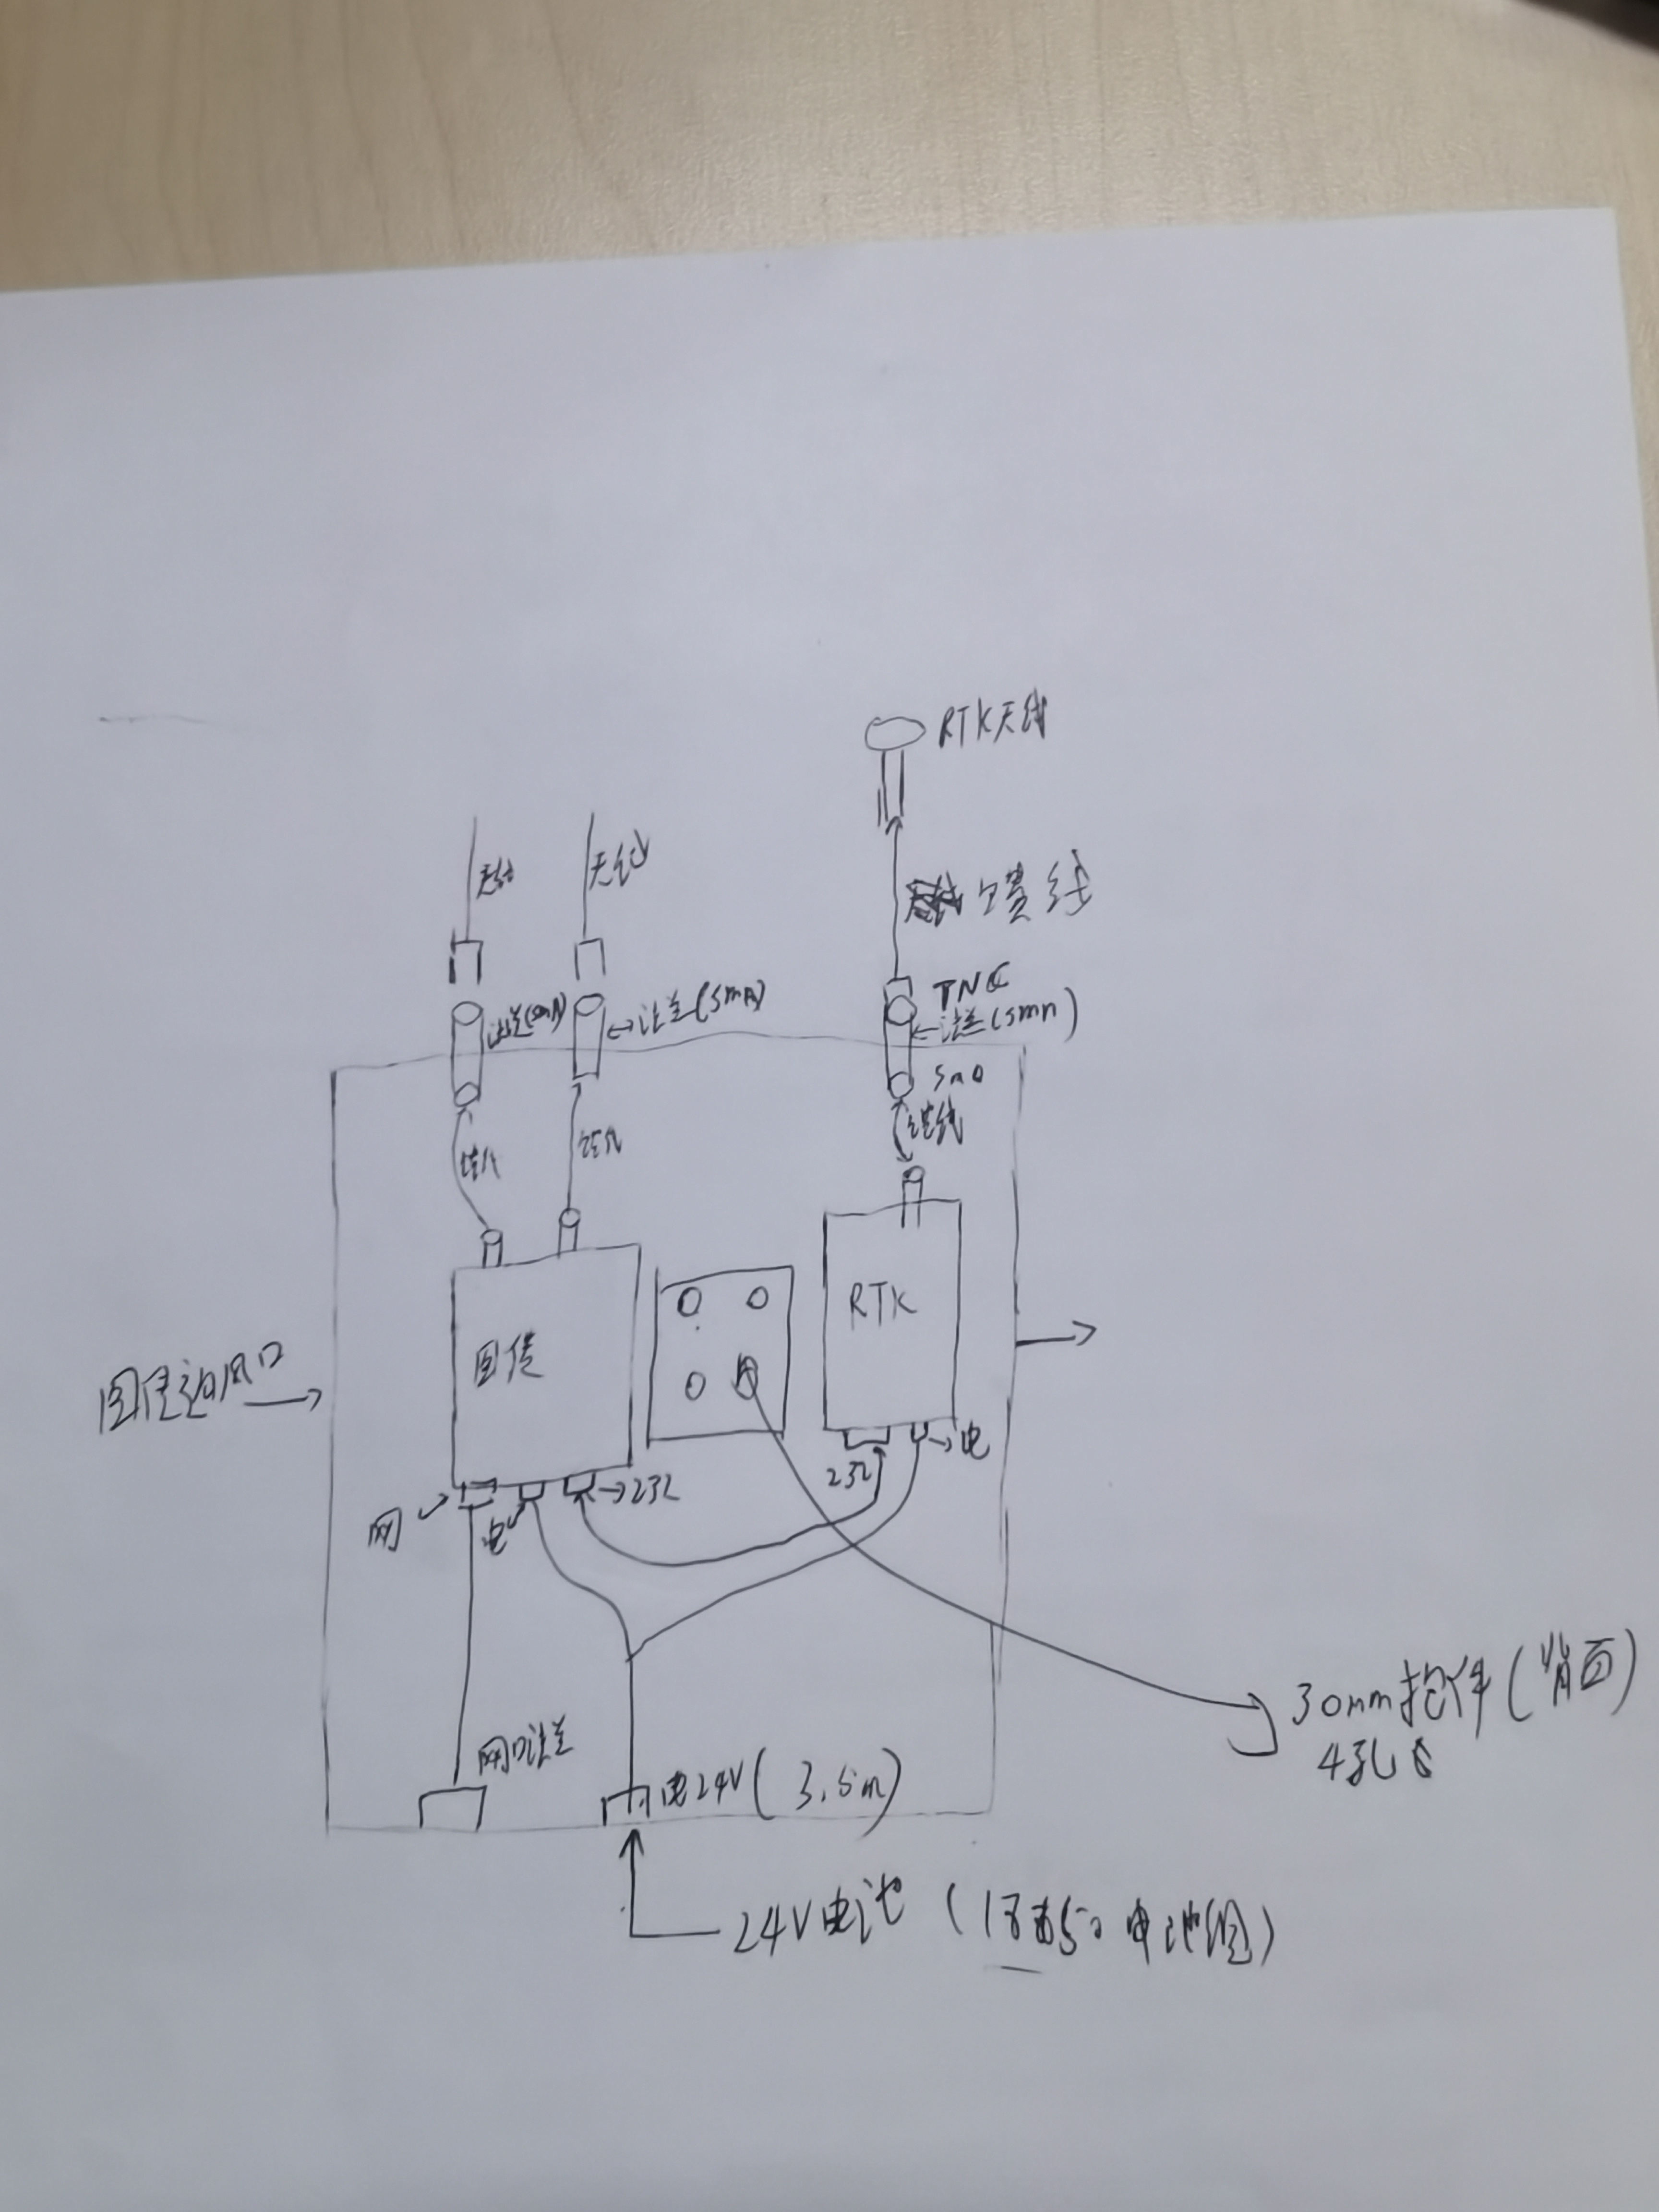 RTK天线
天线
天线
馈线
TNC
法兰(SMA)
法兰(SMA)
法兰(SMA)
SMA
馈线
馈线
馈线
RTK
图传
图传进风口
电
232
232
网
电
网口法兰
电24V(3.5m)
30mm抱件(背面)
4孔
24V电池(18650电池组)